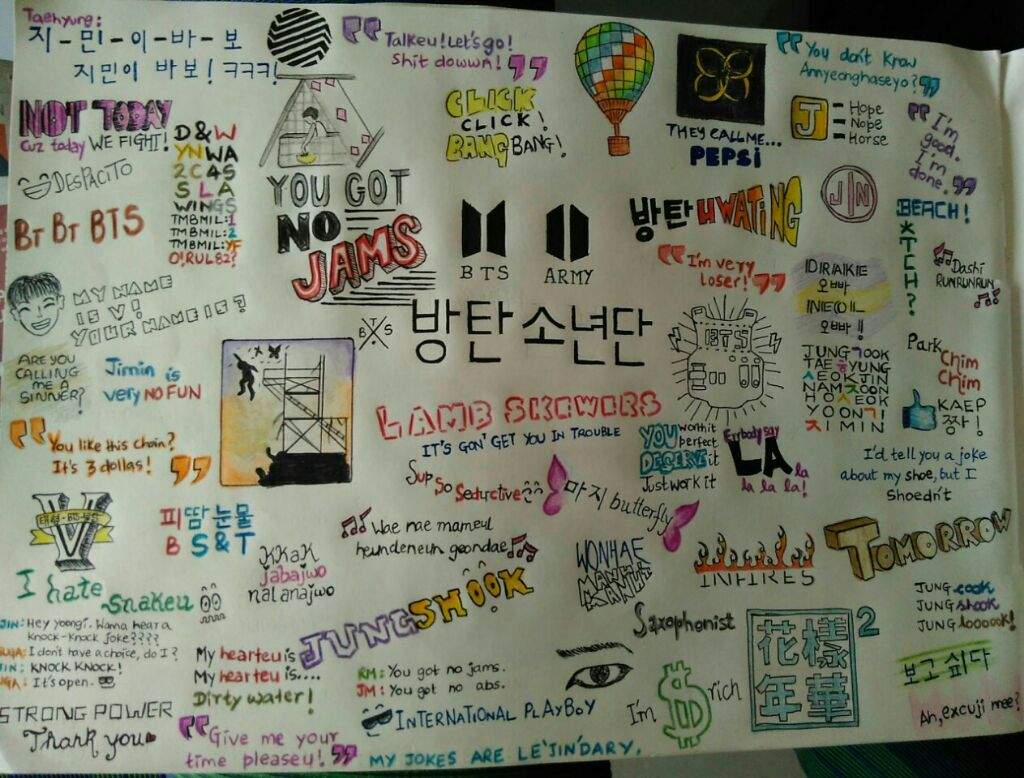 Taehyung:
지-민-이-바-보
지민이 바보! ㅋㅋㅋ!
Talkeu! Let's go!
Shit dowwn!
You don't know
Annyeonghaseyo?
NOT TODAY
Cuz today WE FIGHT!
DESPACITO
BT BT BTS
D&W
YNWA
2C4S
SLA
WINGS
TMBMIL:1
TMBMIL:2
TMBMIL:YF
O!RUL82?
YOU GOT
NO
JAMS
CLICK
CLICK!
BANG BANG!
THEY CALL ME...
PEPSi
J = Hope
Nope
Horse
I'm
good.
I'm
done.
JIN
BEACH!
*TCH?
Dashi
RUNRUNRUN
방탄 HWATING
BTS
ARMY
I'm very
loser!
DRAKE
오빠
NECOL
오빠!!
MY NAME
IS V!
YOUR NAME IS?
BTS
방탄소년단
BTS
JUNGㄱOOK
TAEㅎYUNG
ㅅEOKJIN
NAMㅈOON
HOㅅEOK
YOONㄱI
ㅈIMIN
Park
Chim
Chim
KAEP
짱!
ARE YOU
CALLING
ME A
SINNER?
Jimin is
very NO FUN
LAMB SKEWERS
IT'S GON' GET YOU IN TROUBLE
YOU worth it
perfect
DESERVE it
Just work it
Errbody say
LA la
la la la!
I'd tell you a joke
about my shoe, but I
Shoedn't
You like this chain?
It's 3 dollas!
Sup
So
Seductive
마지 butterfly
V
피 땀 눈물
B S & T
Wae nae mameul
heundeneun geondae
KKaK
jabajwo
nal anajwo
WONHAE
MANHI
MANHI
INFIRES
TOMORROW
I hate
snakeu
JUNGSHOOK
Saxophonist
花樣
年華
2
JUNG cook
JUNG shook
JUNG loooook!
보고 싶다
JIN: Hey yoongi. Wanna hear a
knock-knock joke????
SUGA: I don't have a choice, do I?
JIN: KNOCK KNOCK!
SUGA: It's open.
My hearteu is
My hearteu is....
Dirty water!
RM: You got no jams.
JM: You got no abs.
I'm $ rich
Ah, excuji mee?
STRONG POWER
Thank you
Give me your
time pleaseu!
INTERNATIONAL PLAYBOY
MY JOKES ARE LE'JIN'DARY.